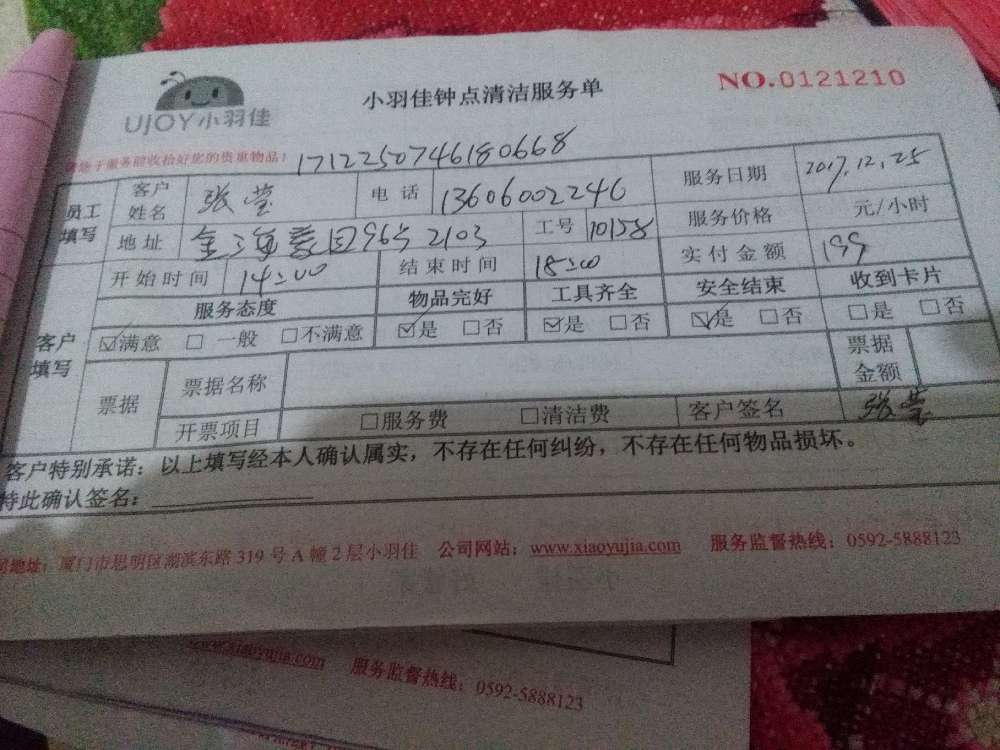 UJOY小羽佳
小羽佳钟点清洁服务单
NO.0121210
服务前收拾好您的贵重物品!
1712250746180668
员工填写 客户姓名 张莹 电话 13606002246 服务日期 2017.12.25
地址 96号2103 工号 10158 服务价格 元/小时
开始时间 14:00 结束时间 18:00 实付金额 199
客户填写 服务态度 物品完好 工具齐全 安全结束 收到卡片
☑满意 □ 一般 □不满意 ☑是 □否 ☑是 □否 ☑是 □否 □是 □否
票据 票据名称 票据金额
开票项目 □服务费 □清洁费 客户签名 张莹
客户特别承诺:以上填写经本人确认属实,不存在任何纠纷,不存在任何物品损坏。
特此确认签名:
地址:厦门市思明区湖滨东路319号A幢2层小羽佳 公司网站:www.xiaoyujia.com 服务监督热线:0592-5888123
www.xiaoyujia.com 服务监督热线:0592-5888123